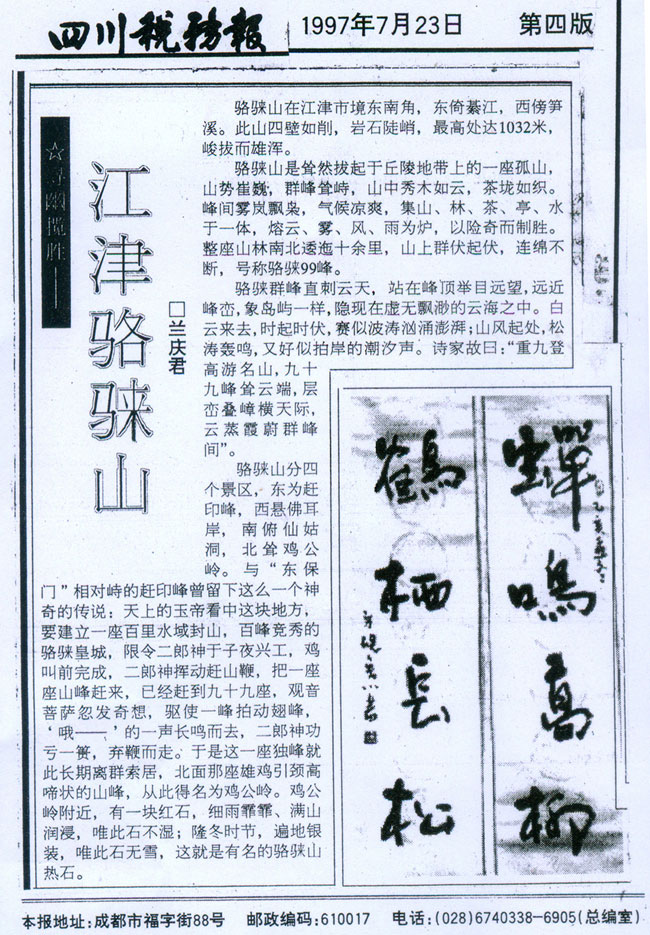 四川税务報
1997年7月23日
第四版
☆寻幽揽胜——
江津骆騋山
□兰庆君
骆騋山在江津市境东南角，东倚綦江，西傍笋
溪。此山四壁如削，岩石陡峭，最高处达1032米，
峻拔而雄浑。
骆騋山是耸然拔起于丘陵地带上的一座孤山，
山势崔巍，群峰耸峙，山中秀木如云，茶垅如织。
峰间雾岚飘枭，气候凉爽，集山、林、茶、亭、水
于一体，熔云、雾、风、雨为炉，以险奇而制胜。
整座山林南北逶迤十余里，山上群伏起伏，连绵不
断，号称骆騋99峰。
骆騋群峰直刺云天，站在峰顶举目远望，远近
峰峦，象岛屿一样，隐现在虚无飘渺的云海之中。白
云来去，时起时伏，赛似波涛汹涌澎湃；山风起处，松
涛轰鸣，又好似拍岸的潮汐声。诗家故曰：“重九登
高游名山，九十
九峰耸云端，层
峦叠嶂横天际，
云蒸霞蔚群峰
间”。
骆騋山分四
个景区，东为赶
印峰，西悬佛耳
岸，南俯仙姑
洞，北耸鸡公
岭。与“东保
门”相对峙的赶印峰曾留下这么一个神
奇的传说：天上的玉帝看中这块地方，
要建立一座百里水域封山，百峰竞秀的
骆騋皇城，限令二郎神于子夜兴工，鸡
叫前完成，二郎神挥动赶山鞭，把一座
座山峰赶来，已经赶到九十九座，观音
菩萨忽发奇想，驱使一峰拍动翅峰，
‘哦——’的一声长鸣而去，二郎神功
亏一篑，弃鞭而走。于是这一座独峰就
此长期离群索居，北面那座雄鸡引颈高
啼状的山峰，从此得名为鸡公岭。鸡公
岭附近，有一块红石，细雨霏霏、满山
润浸，唯此石不湿；隆冬时节，遍地银
装，唯此石无雪，这就是有名的骆騋山
热石。
蝉鸣高柳
鹤栖长松
本报地址：成都市福字街88号 邮政编码：610017 电话：(028)6740338－6905(总编室)